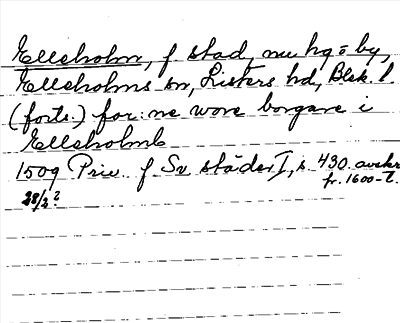 Elleholm, f stad, nu hg o by,
Elleholms sn, Listers hd, Blek. l.
(forts.) for:ne wore borgare i
Elleholmb
1509 Priv. f Sv städer I, s. 430 avskr
28/2? fr. 1600-t.